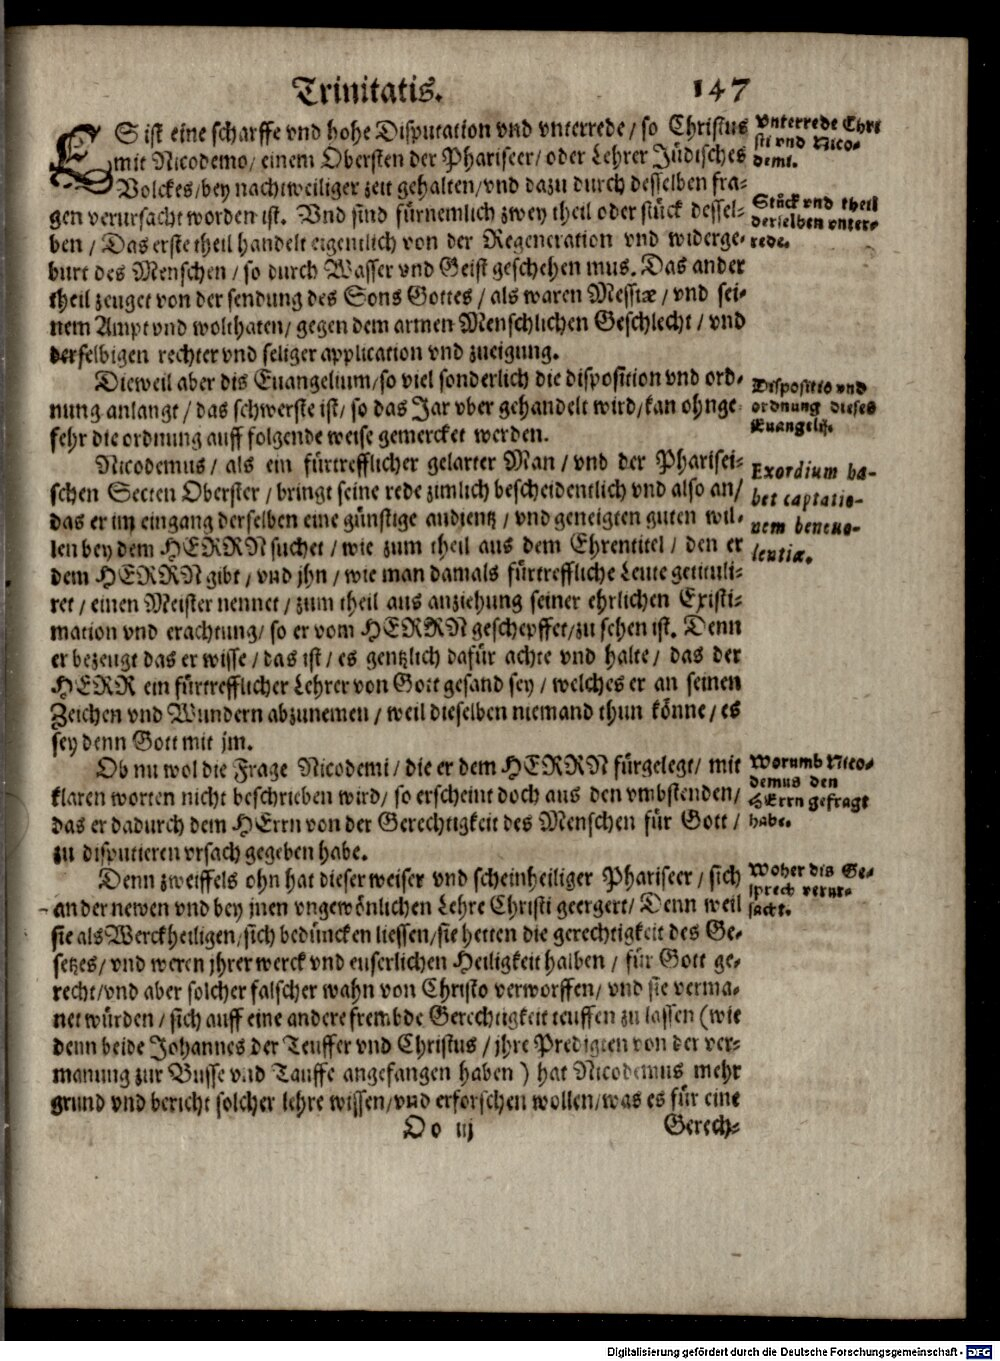 Trinitatis. 147
ES ist eine scharffe vnd hohe Disputation vnd vnterrede / so Christus
mit Nicodemo / einem Obersten der Phariseer / oder Lehrer Jüdisches
Volckes / bey nachtweiliger zeit gehalten / vnd dazu durch desselben fra-
gen verursacht worden ist. Vnd sind fürnemlich zwey theil oder stück dessel-
ben / Das erste theil handelt eigentlich von der Regeneration vnd widerge-
burt des Menschen / so durch Wasser vnd Geist geschehen mus. Das ander
theil zeuget von der sendung des Sons Gottes / als waren Messiæ / vnd sei-
nem Ampt vnd wolthaten / gegen dem armen Menschlichen Geschlecht / vnd
derselbigen rechter vnd seliger application vnd zueigung.
Vnterrede Chri
sti vnd Nico-
demi.
Stück vnd theil
derselben vnter-
rede.
Dieweil aber dis Euangelium / so viel sonderlich die disposition vnd ord-
nung anlangt / das schwerste ist / so das Jar vber gehandelt wird / kan ohnge
fehr die ordnung auff folgende weise gemercket werden.
Dispositio vnd
ordnung dieses
Euangelij.
Nicodemus / als ein fürtrefflicher gelarter Man / vnd der Pharisei-
schen Secten Oberster / bringt seine rede zimlich bescheidentlich vnd also an /
das er im eingang derselben eine günstige audientz / vnd geneigten guten wil-
len bey dem HERRN suchet / wie zum theil aus dem Ehrentitel / den er
dem HERRN gibt / vnd jhn / wie man damals fürtreffliche Leute getituli-
ret / einen Meister nennet / zum theil aus anziehung seiner ehrlichen Existi-
mation vnd erachtung / so er vom HERRN geschepffet / zu sehen ist. Denn
er bezeugt das er wisse / das ist / es gentzlich dafür achte vnd halte / das der
HERR ein fürtrefflicher Lehrer von Gott gesand sey / welches er an seinen
Zeichen vnd Wundern abzunemen / weil dieselben niemand thun könne / es
sey denn Gott mit jm.
Exordium ha-
bet captatio-
nem beneuo-
lentiæ.
Ob nu wol die Frage Nicodemi / die er dem HERRN fürgelegt / mit
klaren worten nicht beschrieben wird / so erscheint doch aus den vmbstenden /
das er dadurch dem HErrn von der Gerechtigkeit des Menschen für Gott /
zu disputieren vrsach gegeben habe.
Worumb Nico-
demus den
HErrn gefragt
habe.
Denn zweiffels ohn hat dieser weiser vnd scheinheiliger Phariseer / sich
an der newen vnd bey jnen vngewönlichen Lehre Christi geergert / Denn weil
sie als Werckheiligen / sich bedüncken liessen / sie hetten die gerechtigkeit des Ge-
setzes / vnd weren jhrer werck vnd euserlichen Heiligkeit halben / für Gott ge-
recht / vnd aber solcher falscher wahn von Christo verworffen / vnd sie verma-
net würden / sich auff eine andere frembde Gerechtigkeit teuffen zu lassen (wie
denn beide Johannes der Teuffer vnd Christus / jhre Predigten von der ver-
manung zur Busse vnd Tauffe angefangen haben) hat Nicodemus mehr
grund vnd bericht solcher lehre wissen / vnd erforschen wollen / was es für eine
Woher dis Ge-
sprech verur-
sacht.
Oo iij Gerech-
Digitalisierung gefördert durch die Deutsche Forschungsgemeinschaft - DFG